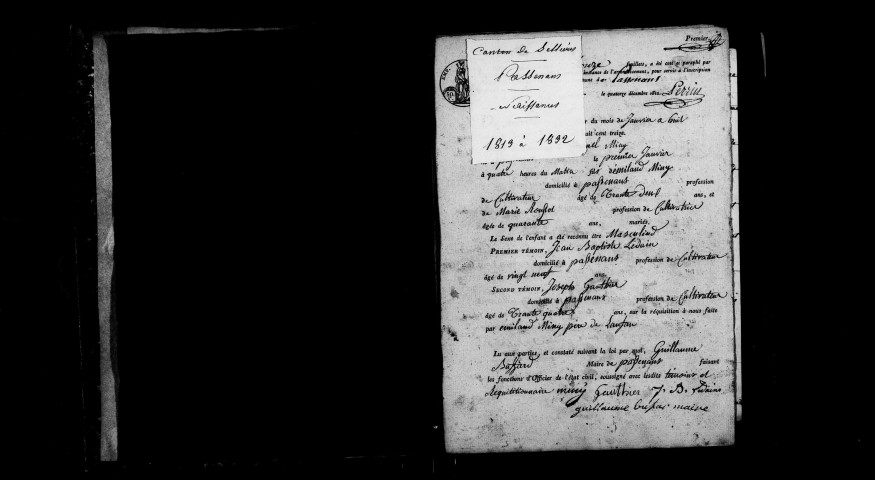 Premier
Canton de Sellières
Passenans
Naissances
1813 à 1832
feuillets, a été coté et paraphé par
pour servir à l'inscription
Passenans
le quatorze décembre 1812 Perrin
du mois de Janvier a huit
huit cent treize.
Miny
le premier Janvier
à quatre heures du Matin fils d'émiland Miny
domicilié à passenans profession
de Cultivateur âgé de Trante Deux ans, et
de Marie profession de Cultivatrice
âgée de quarante ans, mariés.
Le Sexe de l'enfant a été reconnu être Masculin
PREMIER TÉMOIN, Jean Baptiste Ledain
domicilié à passenans profession de Cultivateur
âgé de vingt neuf ans.
SECOND TÉMOIN, Joseph Gauthier
domicilié à passenans profession de Cultivateur
âgé de Trante quatre ans, sur la réquisition à nous faite
par emiland Miny père de Lanfan
Lu aux parties, et constaté suivant la loi par moi, Guillaume
Maire de passenans faisant
les fonctions d'Officier de l'état civil, soussigné avec lesdits témoins et
Requisitionnaire miny gauthier J. B. Ledain
guillaume maire